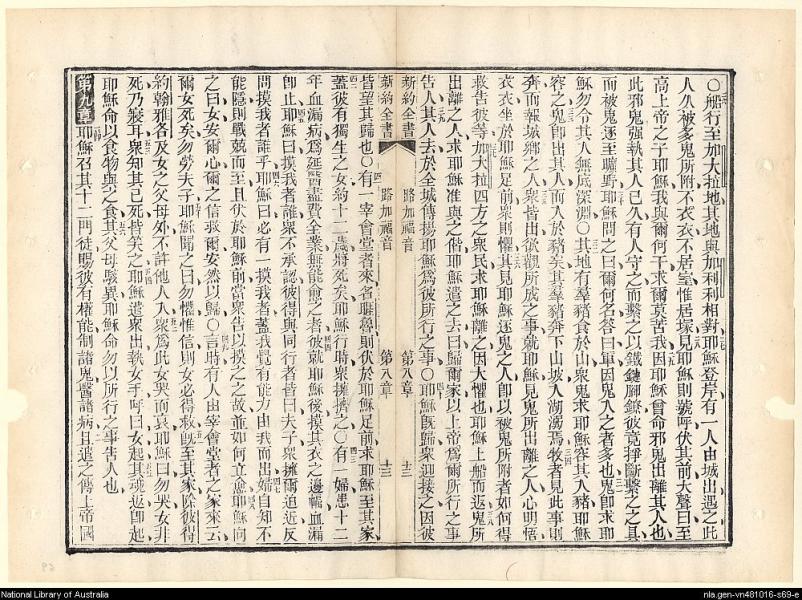 ○船行至加大拉地其地與加利利相對耶穌登岸有一人由城出遇之此
人久被多鬼所附不衣衣不居室惟居塚見耶穌則號呼伏其前大聲曰至
高上帝之子耶穌我與爾何干求爾莫苦我因耶穌曾命邪鬼出離其人也
此邪鬼强執其人已久有人守之而繫之以鐵鏈腳鐐彼竟掙斷繫之之具
而被鬼逐至曠野耶穌問之曰爾何名答曰軍因鬼入之者多也鬼卽求耶
穌勿令其入無底深淵○其地有羣豬食於山衆鬼求耶穌容其入豬耶穌
容之鬼卽出其人而入於豬矣其羣豬奔下山坡入湖溺焉牧者見此事則
奔而報城鄉之人衆皆出欲觀所成之事就耶穌見鬼所出離之人心明悟
衣衣坐於耶穌足前衆則懼其見耶穌逐鬼之人卽以被鬼所附者如何得
救告彼等加大拉四方之衆民求耶穌離之因大懼也耶穌上船而返鬼所
出離之人求耶穌准與之偕耶穌遣之去曰歸爾家以上帝爲爾所行之事
告人其人去於全城傳揚耶穌爲彼所行之事○耶穌旣歸衆迎接之因彼
新約全書 路加福音 第八章 十三
新約全書 路加福音 第八章 十三
皆望其歸也○有一宰會堂者來名睚魯則伏於耶穌足前求耶穌至其家
蓋彼有獨生之女約十二歲將死矣耶穌行時衆擁擠之○有一婦患十二
年血漏病爲延醫盡費全業無能愈之者彼就耶穌後摸其衣之邊幅血漏
卽止耶穌曰摸我者誰衆不承認彼得與同行者皆曰夫子衆擁爾迫近反
問摸我者誰乎耶穌曰必有一摸我者蓋我覺有能力由我而出婦自知不
能隱則戰兢而至且伏於耶穌前當衆告以摸之之故並如何立愈耶穌向
之曰女安爾心爾之信救爾安然以歸○言時有人由宰會堂者之家來云
爾女死矣勿勞夫子耶穌聞之曰勿懼惟信則女必得救旣至其家除彼得
約翰雅各及女之父母外不許他人入衆爲此女哭而哀耶穌曰勿哭女非
死乃寢耳衆知其已死皆笑之耶穌遣衆出執女手呼曰女起其魂返卽起
耶穌命以食物與之食其父母駭異耶穌命勿以所行之事告人也
第九章 耶穌召其十二門徒賜彼有權能制諸鬼醫諸病且遣之傳上帝國
National Library of Australia
nla.gen-vn481016-s69-e